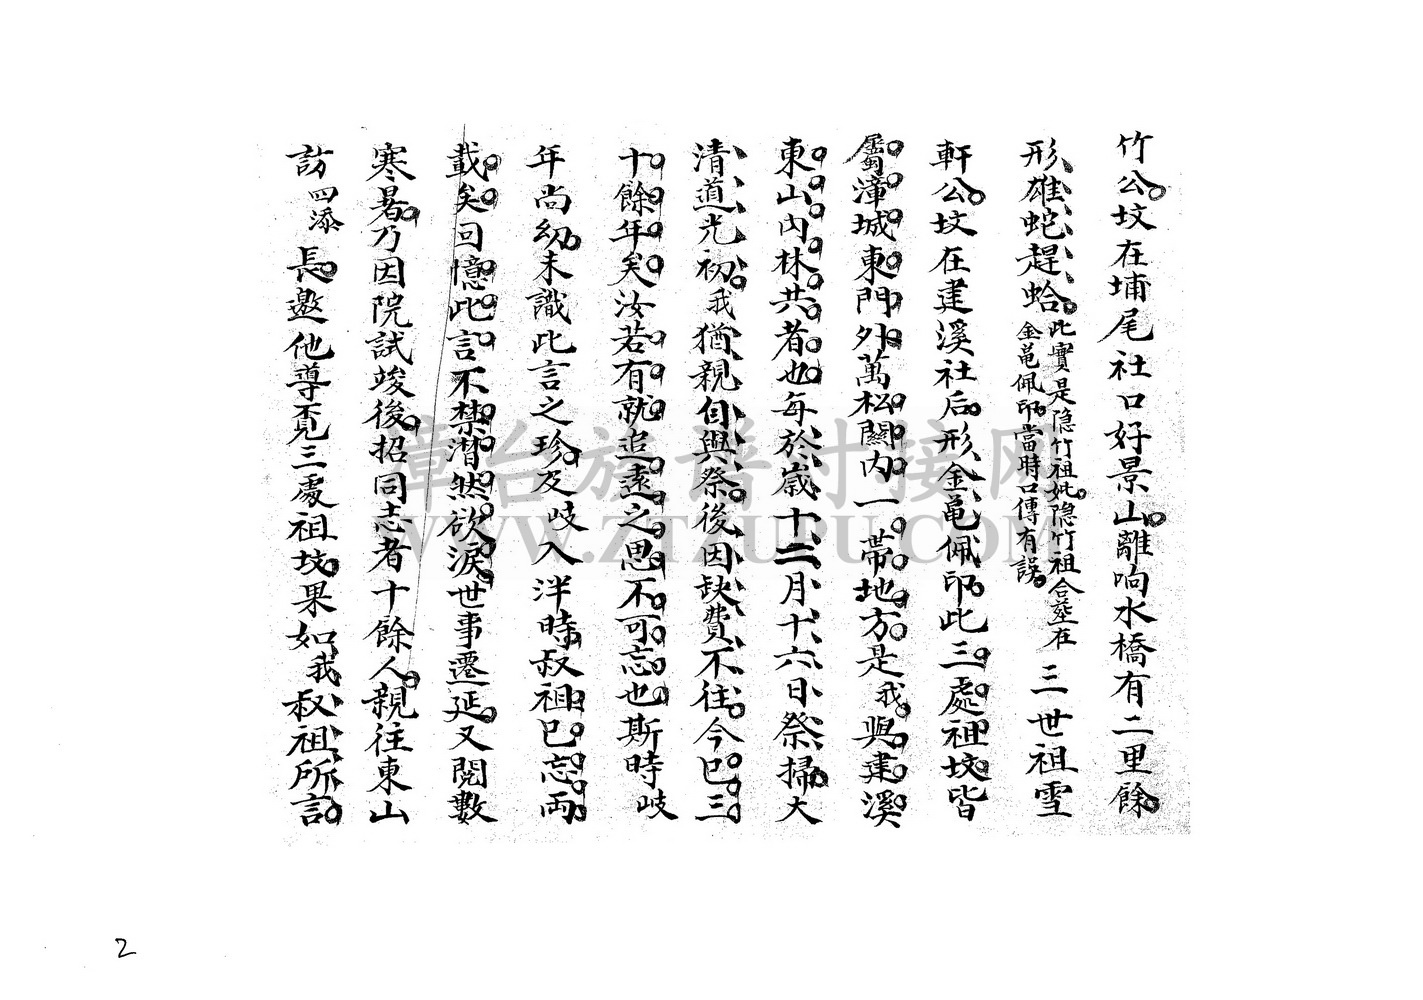 竹公坟在埔尾社口好景山離响水橋有二里餘
形雄蛇趕蛤此實是隐竹祖妣隐竹祖合塟在金亀佩印當時口傳有誤三世祖雪
軒公坟在建溪社后形金亀佩印此三處祖坟皆
屬漳城東門外萬松關内一帶地方是我與建溪
東山内林共者也每於歲十二月十六日祭掃大
清道光初我猶親自與祭後因缺費不往今已三
十餘年矣汝若有就追遠之思不可忘也斯時岐
年尚幼未識此言之珍及岐入泮時叔祖已忘両
載矣回憶此言不禁潸然欲淚世事遷延又閱數
寒暑乃因院試竣後招同志者十餘人親往東山
訪四添長邀他導覓三處祖坟果如我叔祖所言
漳台族谱对接网
WWW.ZTZUPU.COM
2